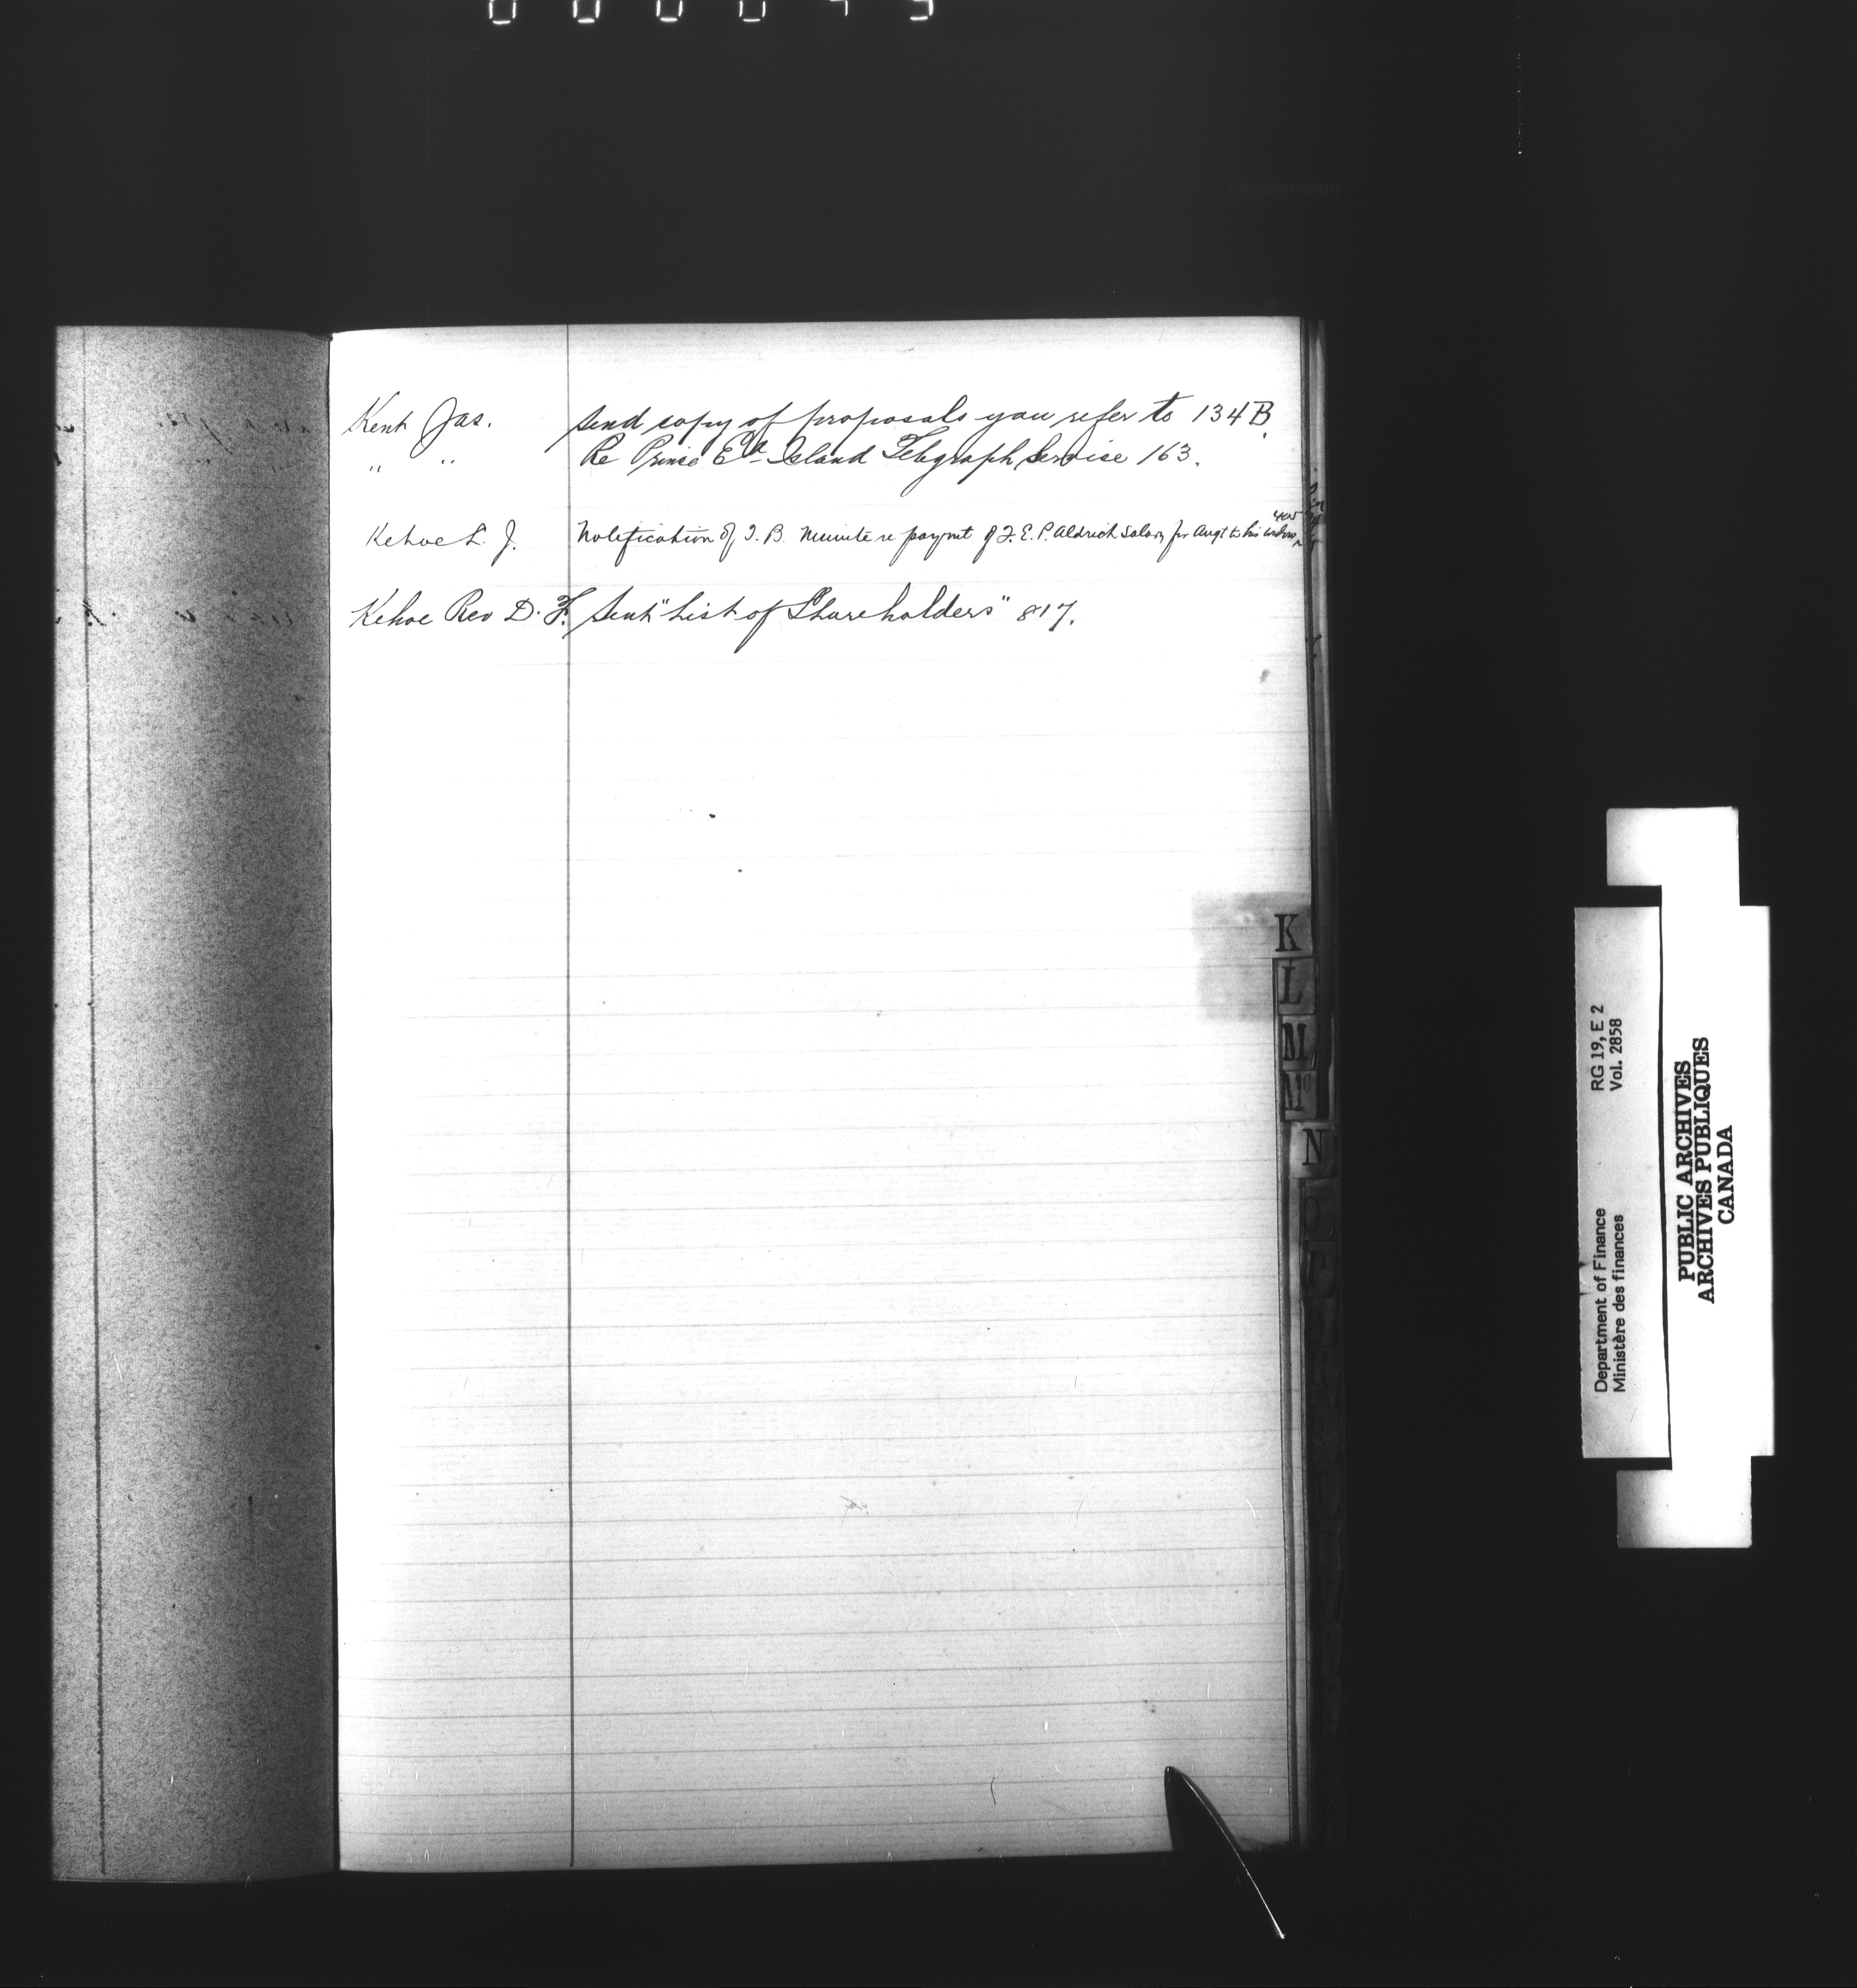 Kent Jas. Send copy of proposals you refer to 134B.
" " Re Prince Ed. Island Telegraph Service 163.
Kehoe L. J. Notification of T. B. Minute re paymt of F. E. P. Aldrich Salary for Augt to his widow 405
Kehoe Rev D. F. Sent "List of Shareholders" 817.
K
L
M
Mc
N
Department of Finance RG 19, E 2
Ministère des finances Vol. 2858
PUBLIC ARCHIVES
ARCHIVES PUBLIQUES
CANADA